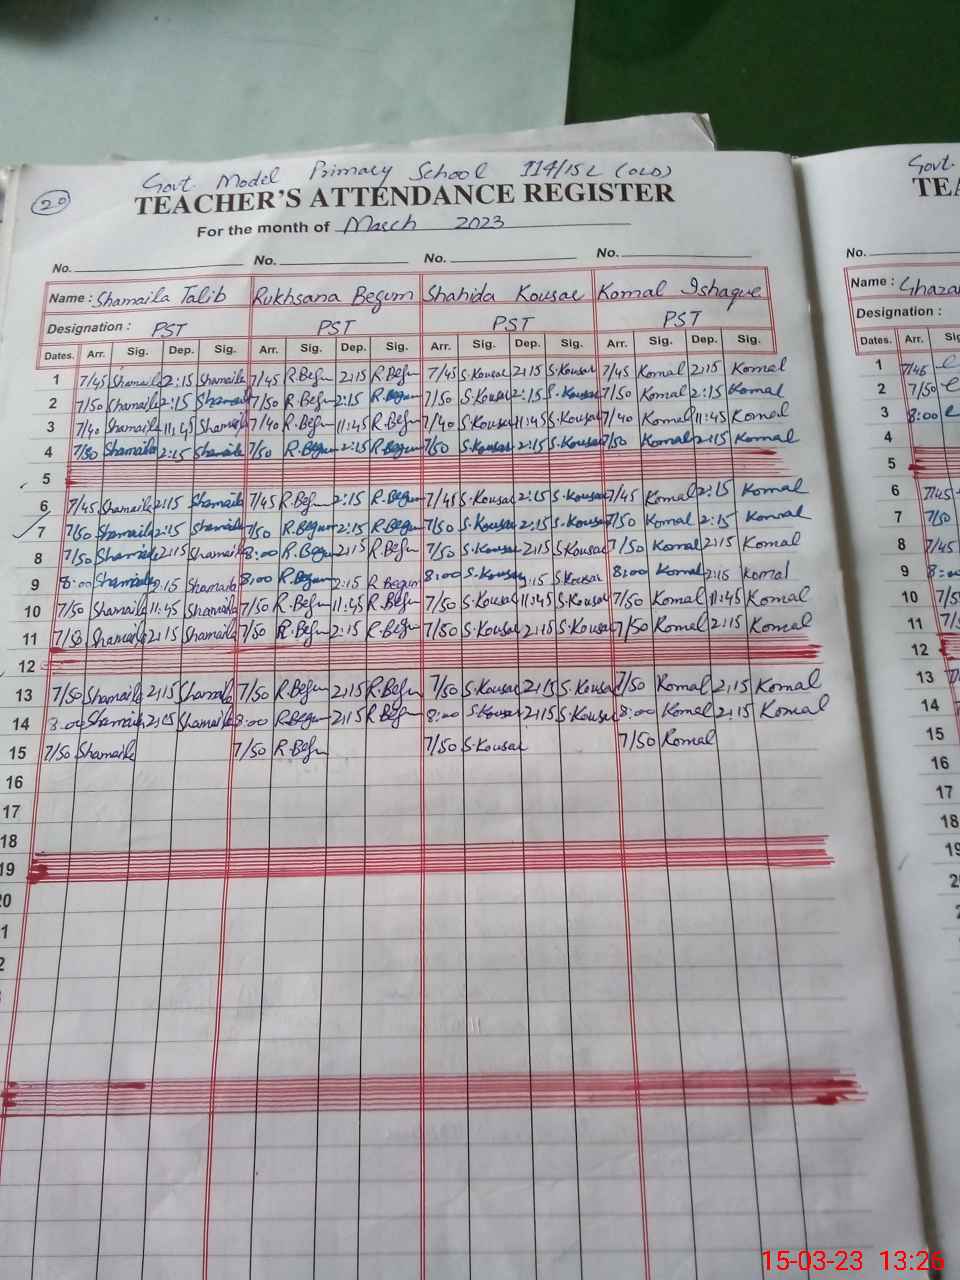 Govt. Model Primary School 114/15L (OLD) Govt.
20 TEACHER'S ATTENDANCE REGISTER TEA
For the month of March 2023
No. No. No. No. No.
Name : Shamaila Talib Rukhsana Begum Shahida Kousar Komal Ishaque Name : Ghaza
Designation : PST PST PST PST Designation :
Dates. Arr. Sig. Dep. Sig. Arr. Sig. Dep. Sig. Arr. Sig. Dep. Sig. Arr. Sig. Dep. Sig. Dates. Arr. Sig
1 7/45 Shamaila 2:15 Shamaila 7/45 R.Begum 2:15 R.Begum 7/45 S.Kousar 2:15 S.Kousar 7/45 Komal 2:15 Komal 1 7/45
2 7/50 Shamaila 2:15 Shamaila 7/50 R.Begum 2:15 R.Begum 7/50 S.Kousar 2:15 S.Kousar 7/50 Komal 2:15 Komal 2 7/50
3 7/40 Shamaila 11:45 Shamaila 7/40 R.Begum 11:45 R.Begum 7/40 S.Kousar 11:45 S.Kousar 7/40 Komal 11:45 Komal 3 8:00
4 7/50 Shamaila 2:15 Shamaila 7/50 R.Begum 2:15 R.Begum 7/50 S.Kousar 2:15 S.Kousar 7/50 Komal 2:15 Komal 4
5 5
6 7/45 Shamaila 2:15 Shamaila 7/45 R.Begum 2:15 R.Begum 7/45 S.Kousar 2:15 S.Kousar 7/45 Komal 2:15 Komal 6 7/45
7 7/50 Shamaila 2:15 Shamaila 7/50 R.Begum 2:15 R.Begum 7/50 S.Kousar 2:15 S.Kousar 7/50 Komal 2:15 Komal 7 7/50
8 7/50 Shamaila 2:15 Shamaila 8:00 R.Begum 2:15 R.Begum 7/50 S.Kousar 2:15 S.Kousar 7/50 Komal 2:15 Komal 8 7/45
9 8:00 Shamaila 2:15 Shamaila 8:00 R.Begum 2:15 R.Begum 8:00 S.Kousar 2:15 S.Kousar 8:00 Komal 2:15 Komal 9
10 7/50 Shamaila 11:45 Shamaila 7/50 R.Begum 11:45 R.Begum 7/50 S.Kousar 11:45 S.Kousar 7/50 Komal 11:45 Komal 10
11 7/50 Shamaila 2:15 Shamaila 7/50 R.Begum 2:15 R.Begum 7/50 S.Kousar 2:15 S.Kousar 7/50 Komal 2:15 Komal 11
12 12
13 7/50 Shamaila 2:15 Shamaila 7/50 R.Begum 2:15 R.Begum 7/50 S.Kousar 2:15 S.Kousar 7/50 Komal 2:15 Komal 13
14 8:00 Shamaila 2:15 Shamaila 8:00 R.Begum 2:15 R.Begum 8:00 S.Kousar 2:15 S.Kousar 8:00 Komal 2:15 Komal 14
15 7/50 Shamaila 7/50 R.Begum 7/50 S.Kousar 7/50 Komal 15
16 16
17 17
18 18
19 19
20
15-03-23 13:26